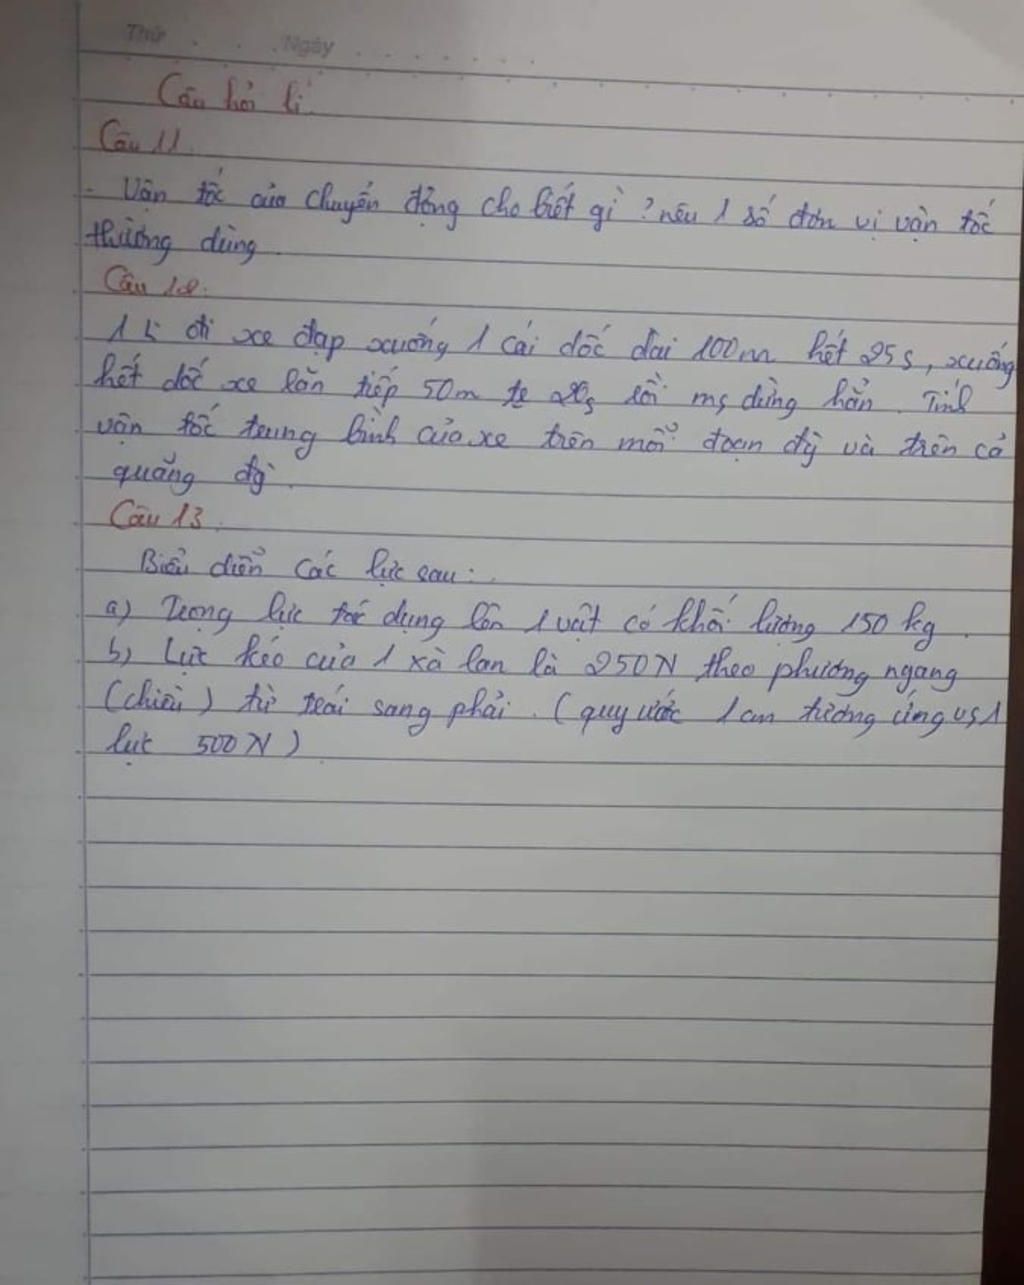 Thứ . . . Ngày . . . . . . .
Câu hỏi lí
Câu 11.
- Vận tốc của chuyển động cho biết gì ? nêu 1 số đơn vị vận tốc
thường dùng
Câu 12.
1 đi xe đạp xuống 1 cái dốc dài 100m hết 25s, xuống
hết dốc xe lăn tiếp 50m 20s rồi ms dừng hẳn. Tính
vận tốc trung bình của xe trên mỗi đoạn đg và trên cả
quãng đg.
Câu 13.
Biểu diễn các lực sau:
a) Trọng lực tác dụng lên 1 vật có khối lượng 150 kg.
b) Lực kéo của 1 xà lan là 250N theo phương ngang
(chiều) từ trái sang phải. (quy ước 1cm tương ứng vs 1
lực 500N)